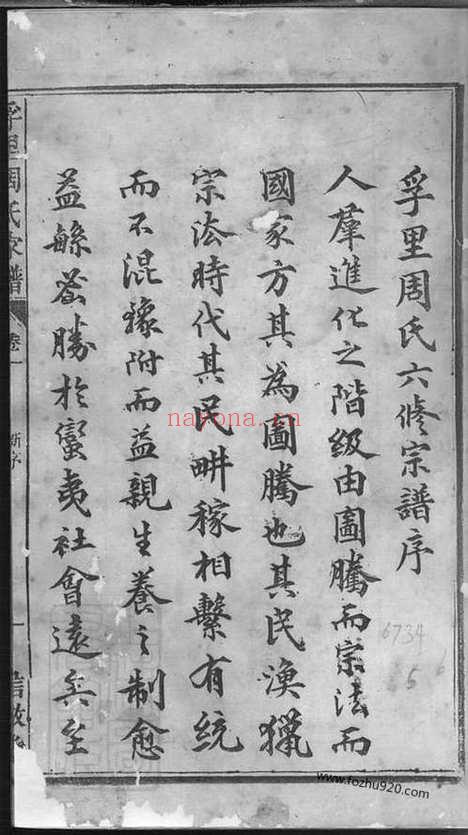 孚里周氏六修宗譜序
人羣進化之階級由圖騰而宗法而
國家方其為圖騰也其民漁獵
宗法時代其民畊稼相繫有統
而不混猱附而益親生養之制愈
益繇蓄勝於蠻夷社會遠矣至
孚里周氏家譜
卷一
新序
一
6734
65
nayona.cn
www.fozhu920.com